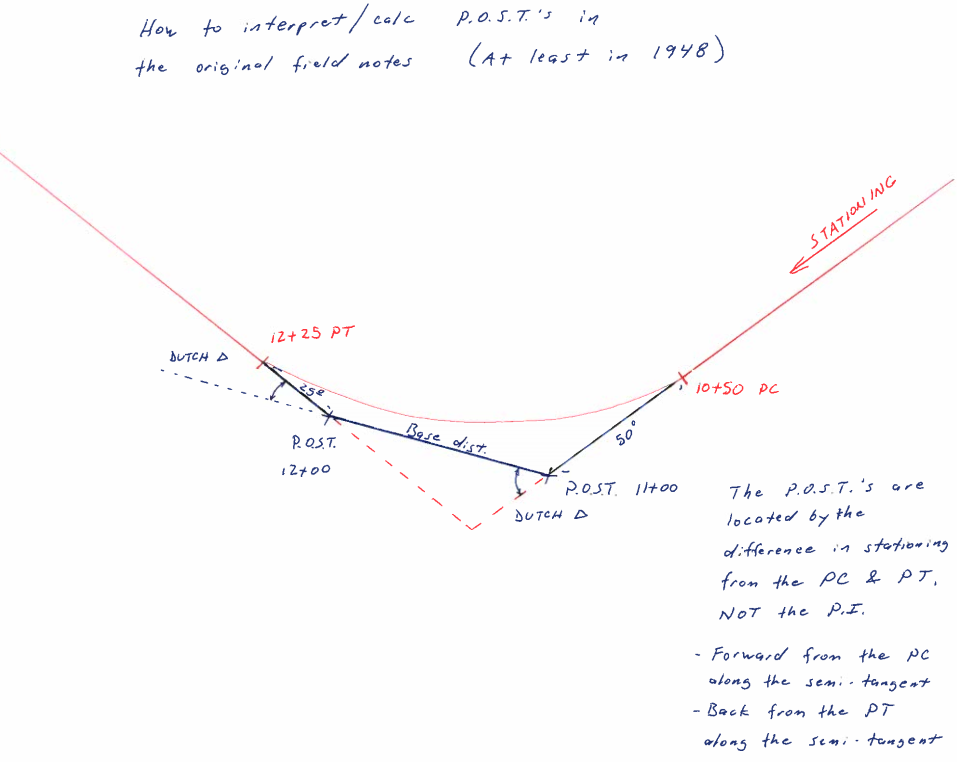 How to interpret/calc P.O.S.T.'s in
the original field notes (At least in 1948)
STATIONING
12+25 PT
DUTCH Δ
25º
10+50 PC
Base dist.
50º
P.O.S.T.
12+00
P.O.S.T. 11+00
DUTCH Δ
The P.O.S.T.'s are
located by the
difference in stationing
from the PC & PT,
NOT the P.I.
- Forward from the PC
along the semi-tangent
- Back from the PT
along the semi-tangent